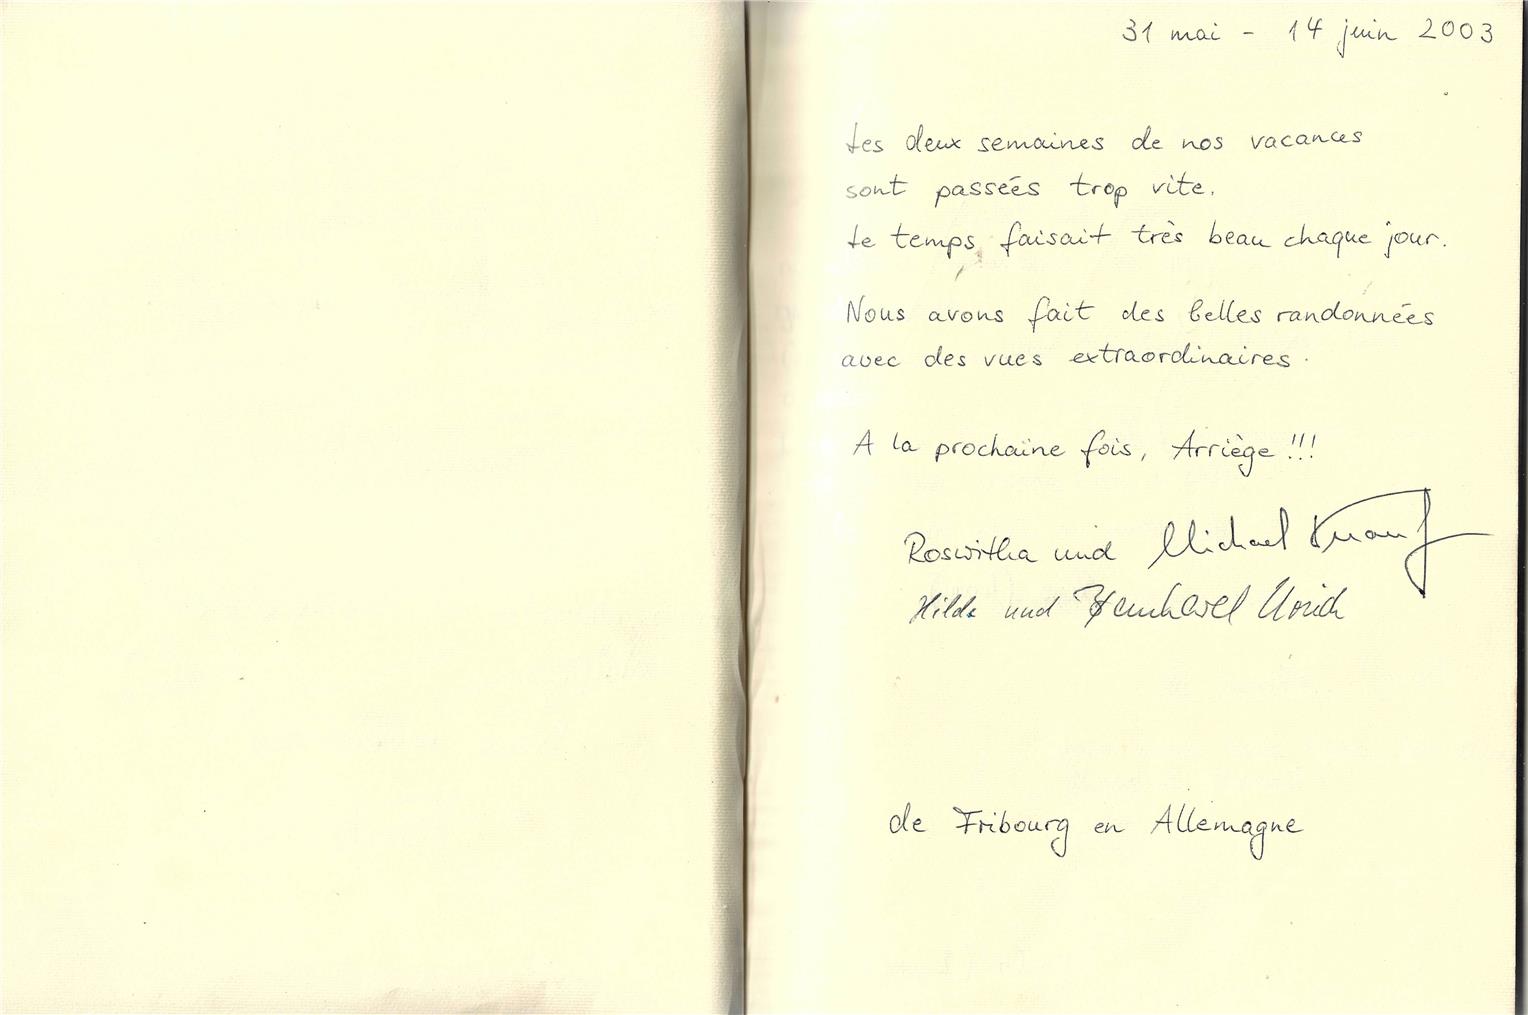 31 mai - 14 juin 2003
Les deux semaines de nos vacances
sont passées trop vite.
Le temps faisait très beau chaque jour.
Nous avons fait des belles randonnées
avec des vues extraordinaires.
A la prochaine fois, Arriège !!!
Roswitha und Michael Knauf
Hilde und
de Fribourg en Allemagne